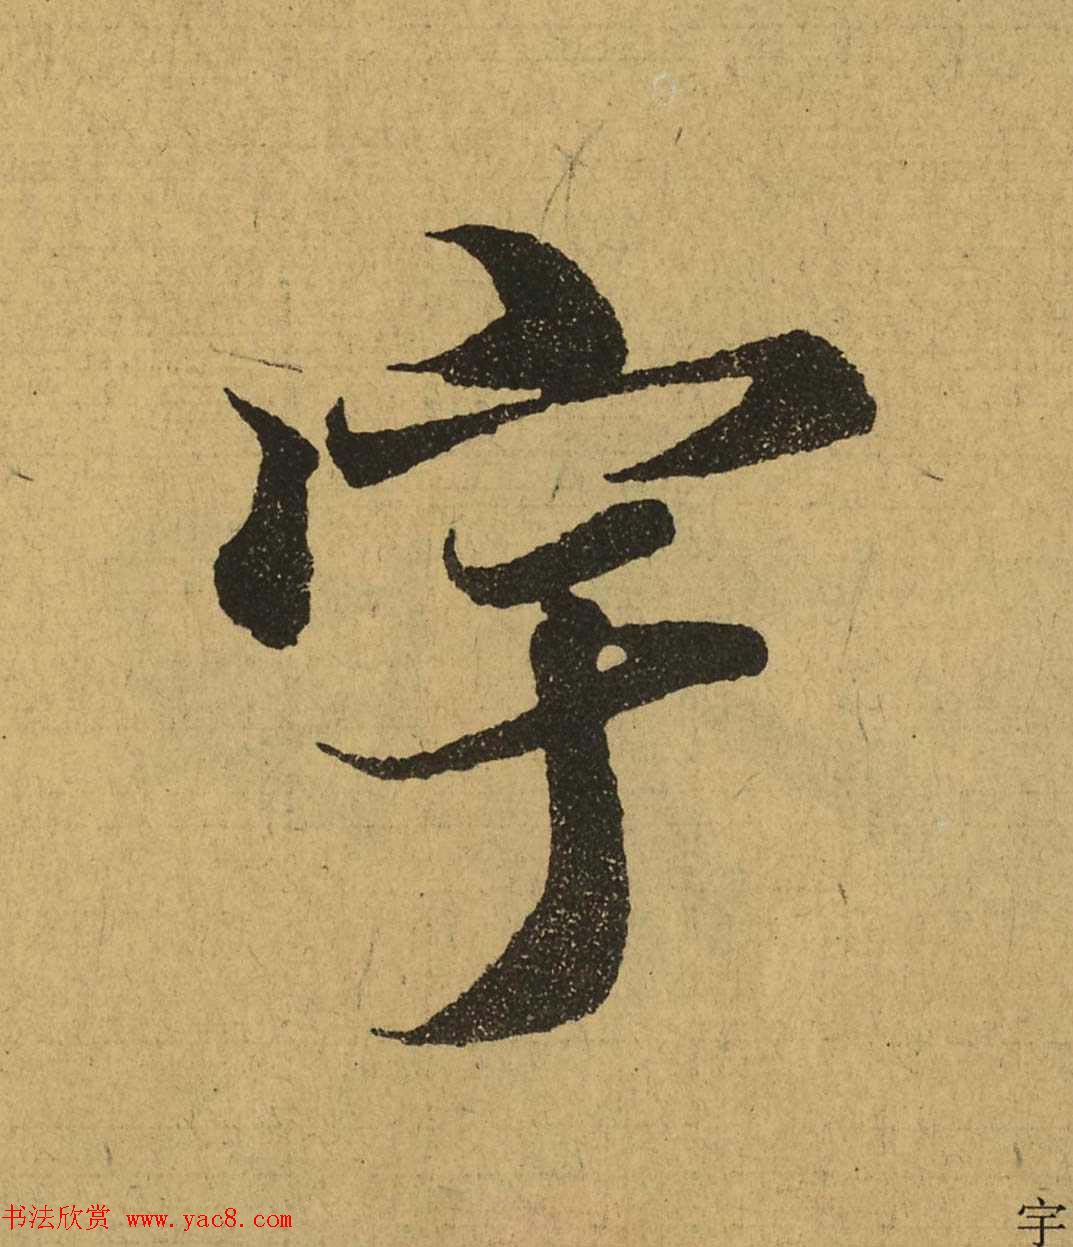 宇
书法欣赏 www.yac8.com
宇